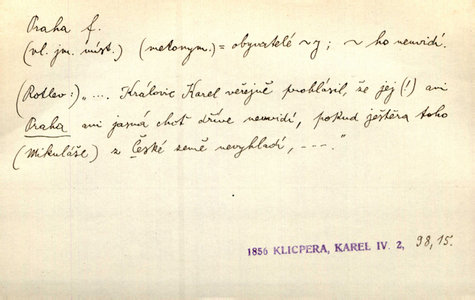 Praha f.
(vl. jm. míst.) (metonym.) = obyvatelé ~y; ~ ho neuvidí.
(Rotlev:) „.... Kralovic Karel veřejně prohlásil, že jej (!) ani
Praha ani jasná choť dříve neuvidí, pokud ještěra toho
(Mikuláše) z České země nevyhladí, ---."
1856 KLICPERA, KAREL IV. 2, 98, 15.